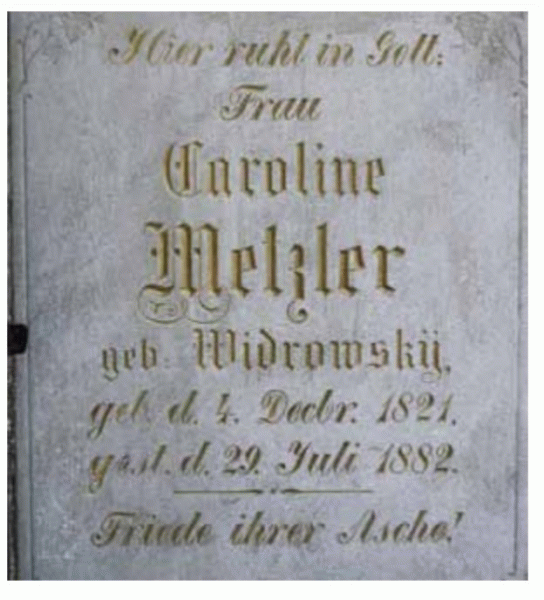 Hier ruht in Gott:
Frau
Caroline
Metzler
geb. Widrowskÿ,
geb. d. 4. Decbr. 1821,
gest. d. 29. Juli 1882.
Friede ihrer Asche!